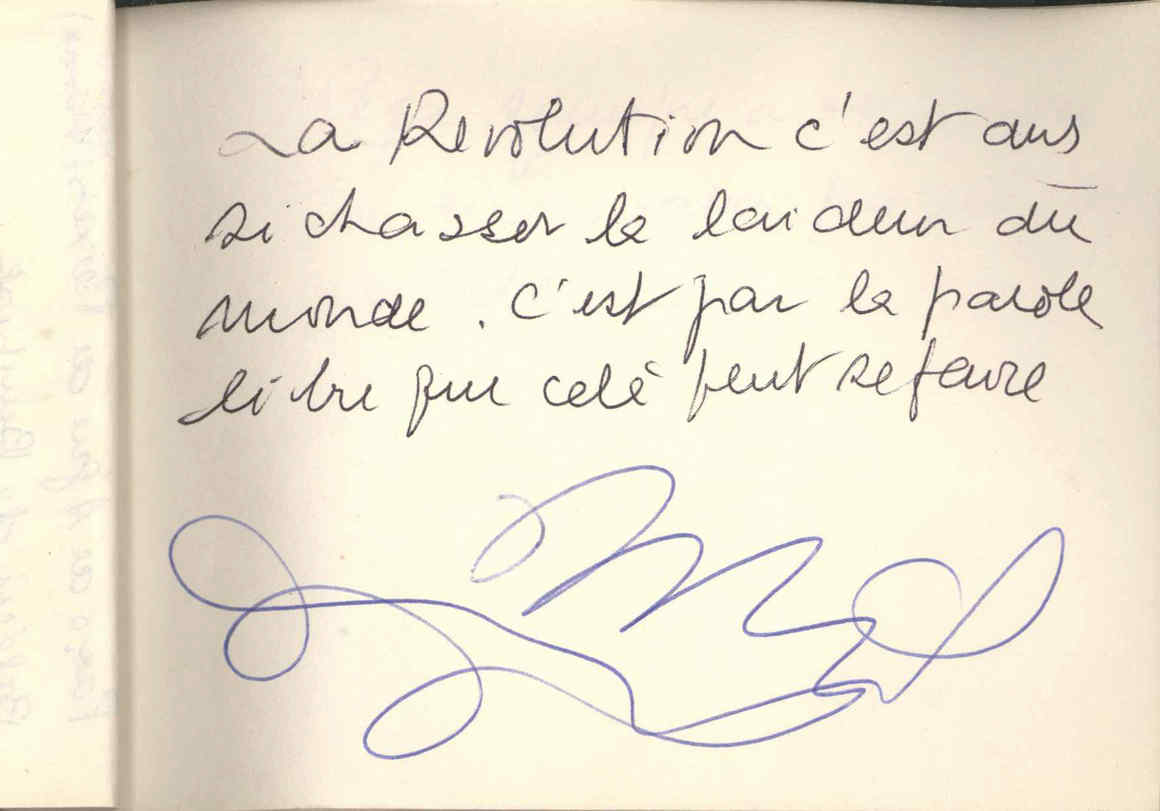 La Revolution c'est aus
si chasser la laideur du
monde. c'est par la parole
libre que celà peut se faire